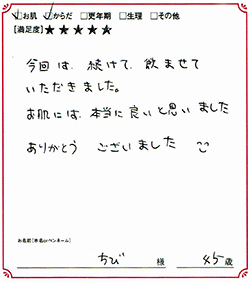 ☑お肌 ☑からだ □更年期 □生理 □その他
[満足度]★★★★★
今回は、続けて、飲ませて
いただきました。
お肌には、本当に良いと思いました
ありがとう ございました
お名前[本名orペンネーム]
ちび 様 45歳